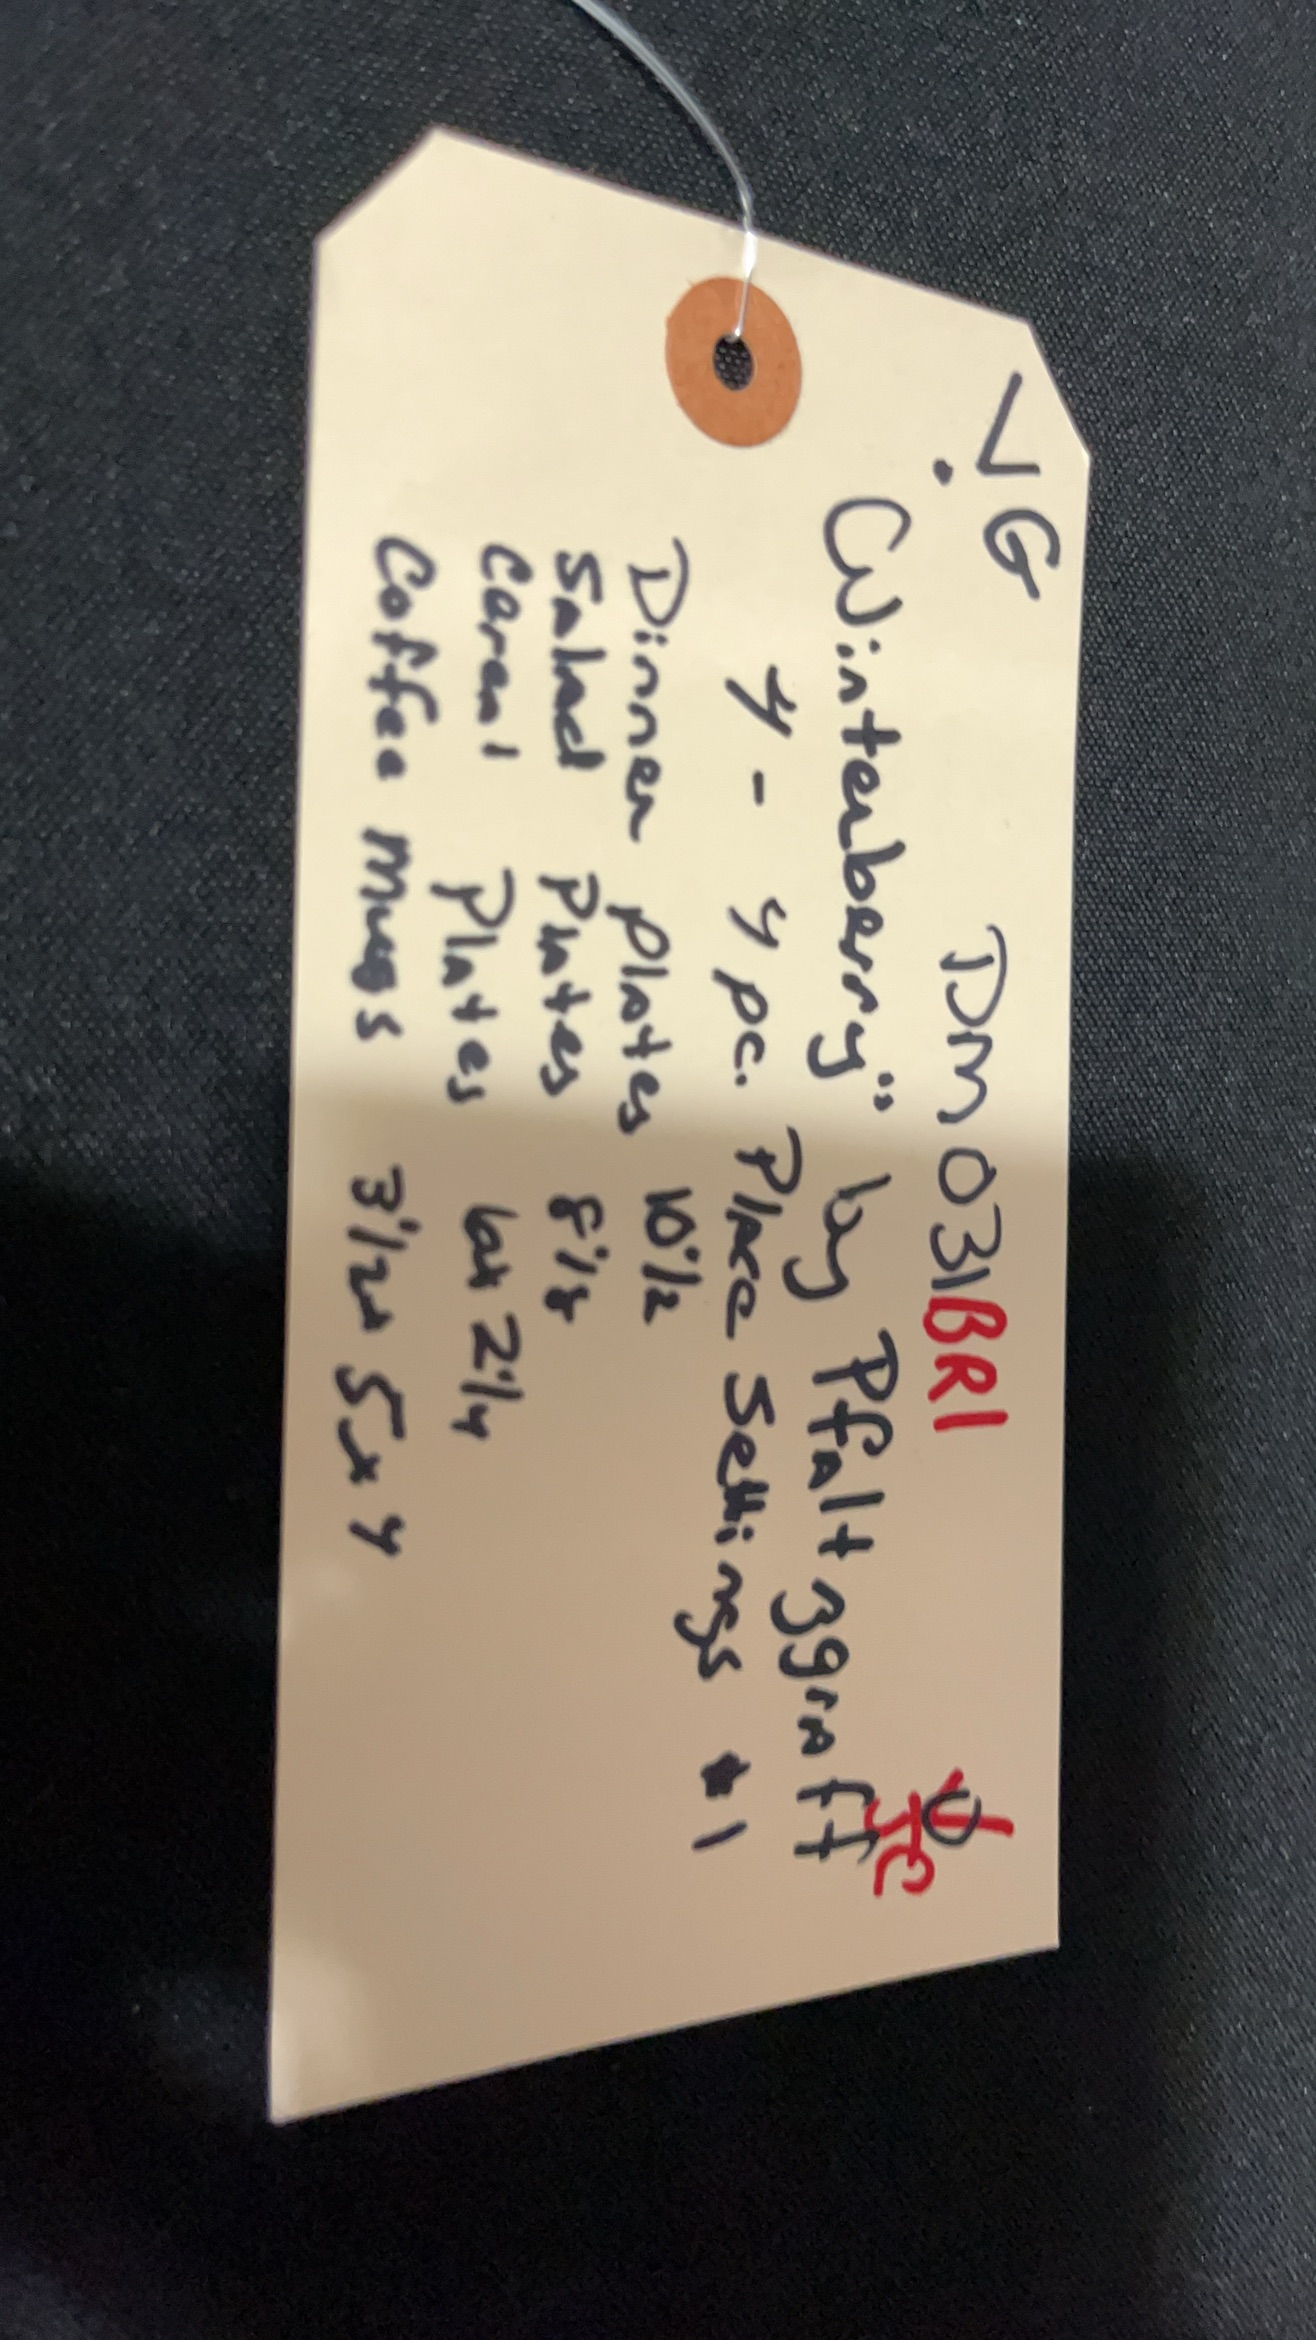 V.G DM031BR1
"Winterberry" by Pfaltzgraff
4 - 4 pc. Place Settings #1
Dinner plates 10 1/2
Salad Plates 8 1/8
Cereal Plates 6x 2 1/4
Coffee Mugs 3 1/2 x 5 x 4